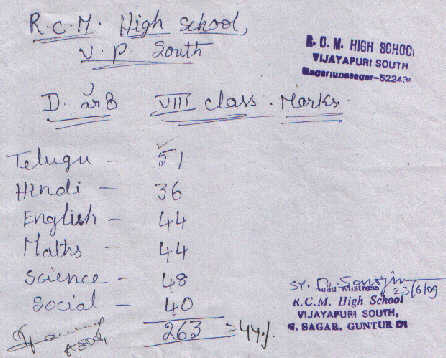 R.C.M. High School,
V.P. South
R.C.M. HIGH SCHOOL
VIJAYAPURI SOUTH
VIII class. Marks.
Telugu - 51
Hindi - 36
English - 44
Maths - 44
Science - 48
Social - 40
263 = 44%
23/6/09
R.C.M. High School
VIJAYAPURI SOUTH,
N. SAGAR, GUNTUR Dt